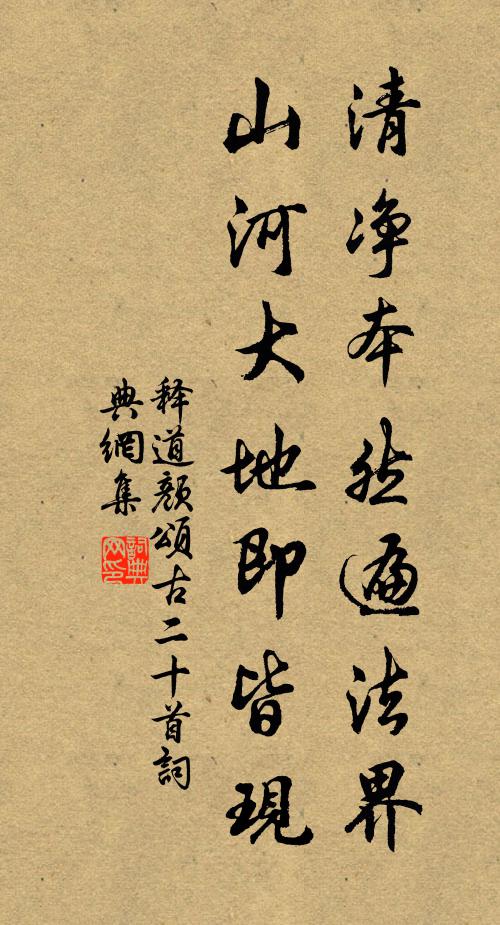 清净本然遍法界
山河大地即皆現
释道颜頌古二十首詞
典網集
詞典網印